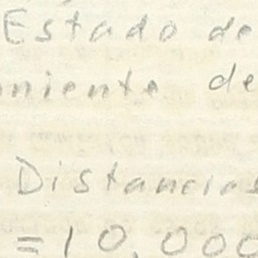 Estado de
niente de
Distancias
=10.000